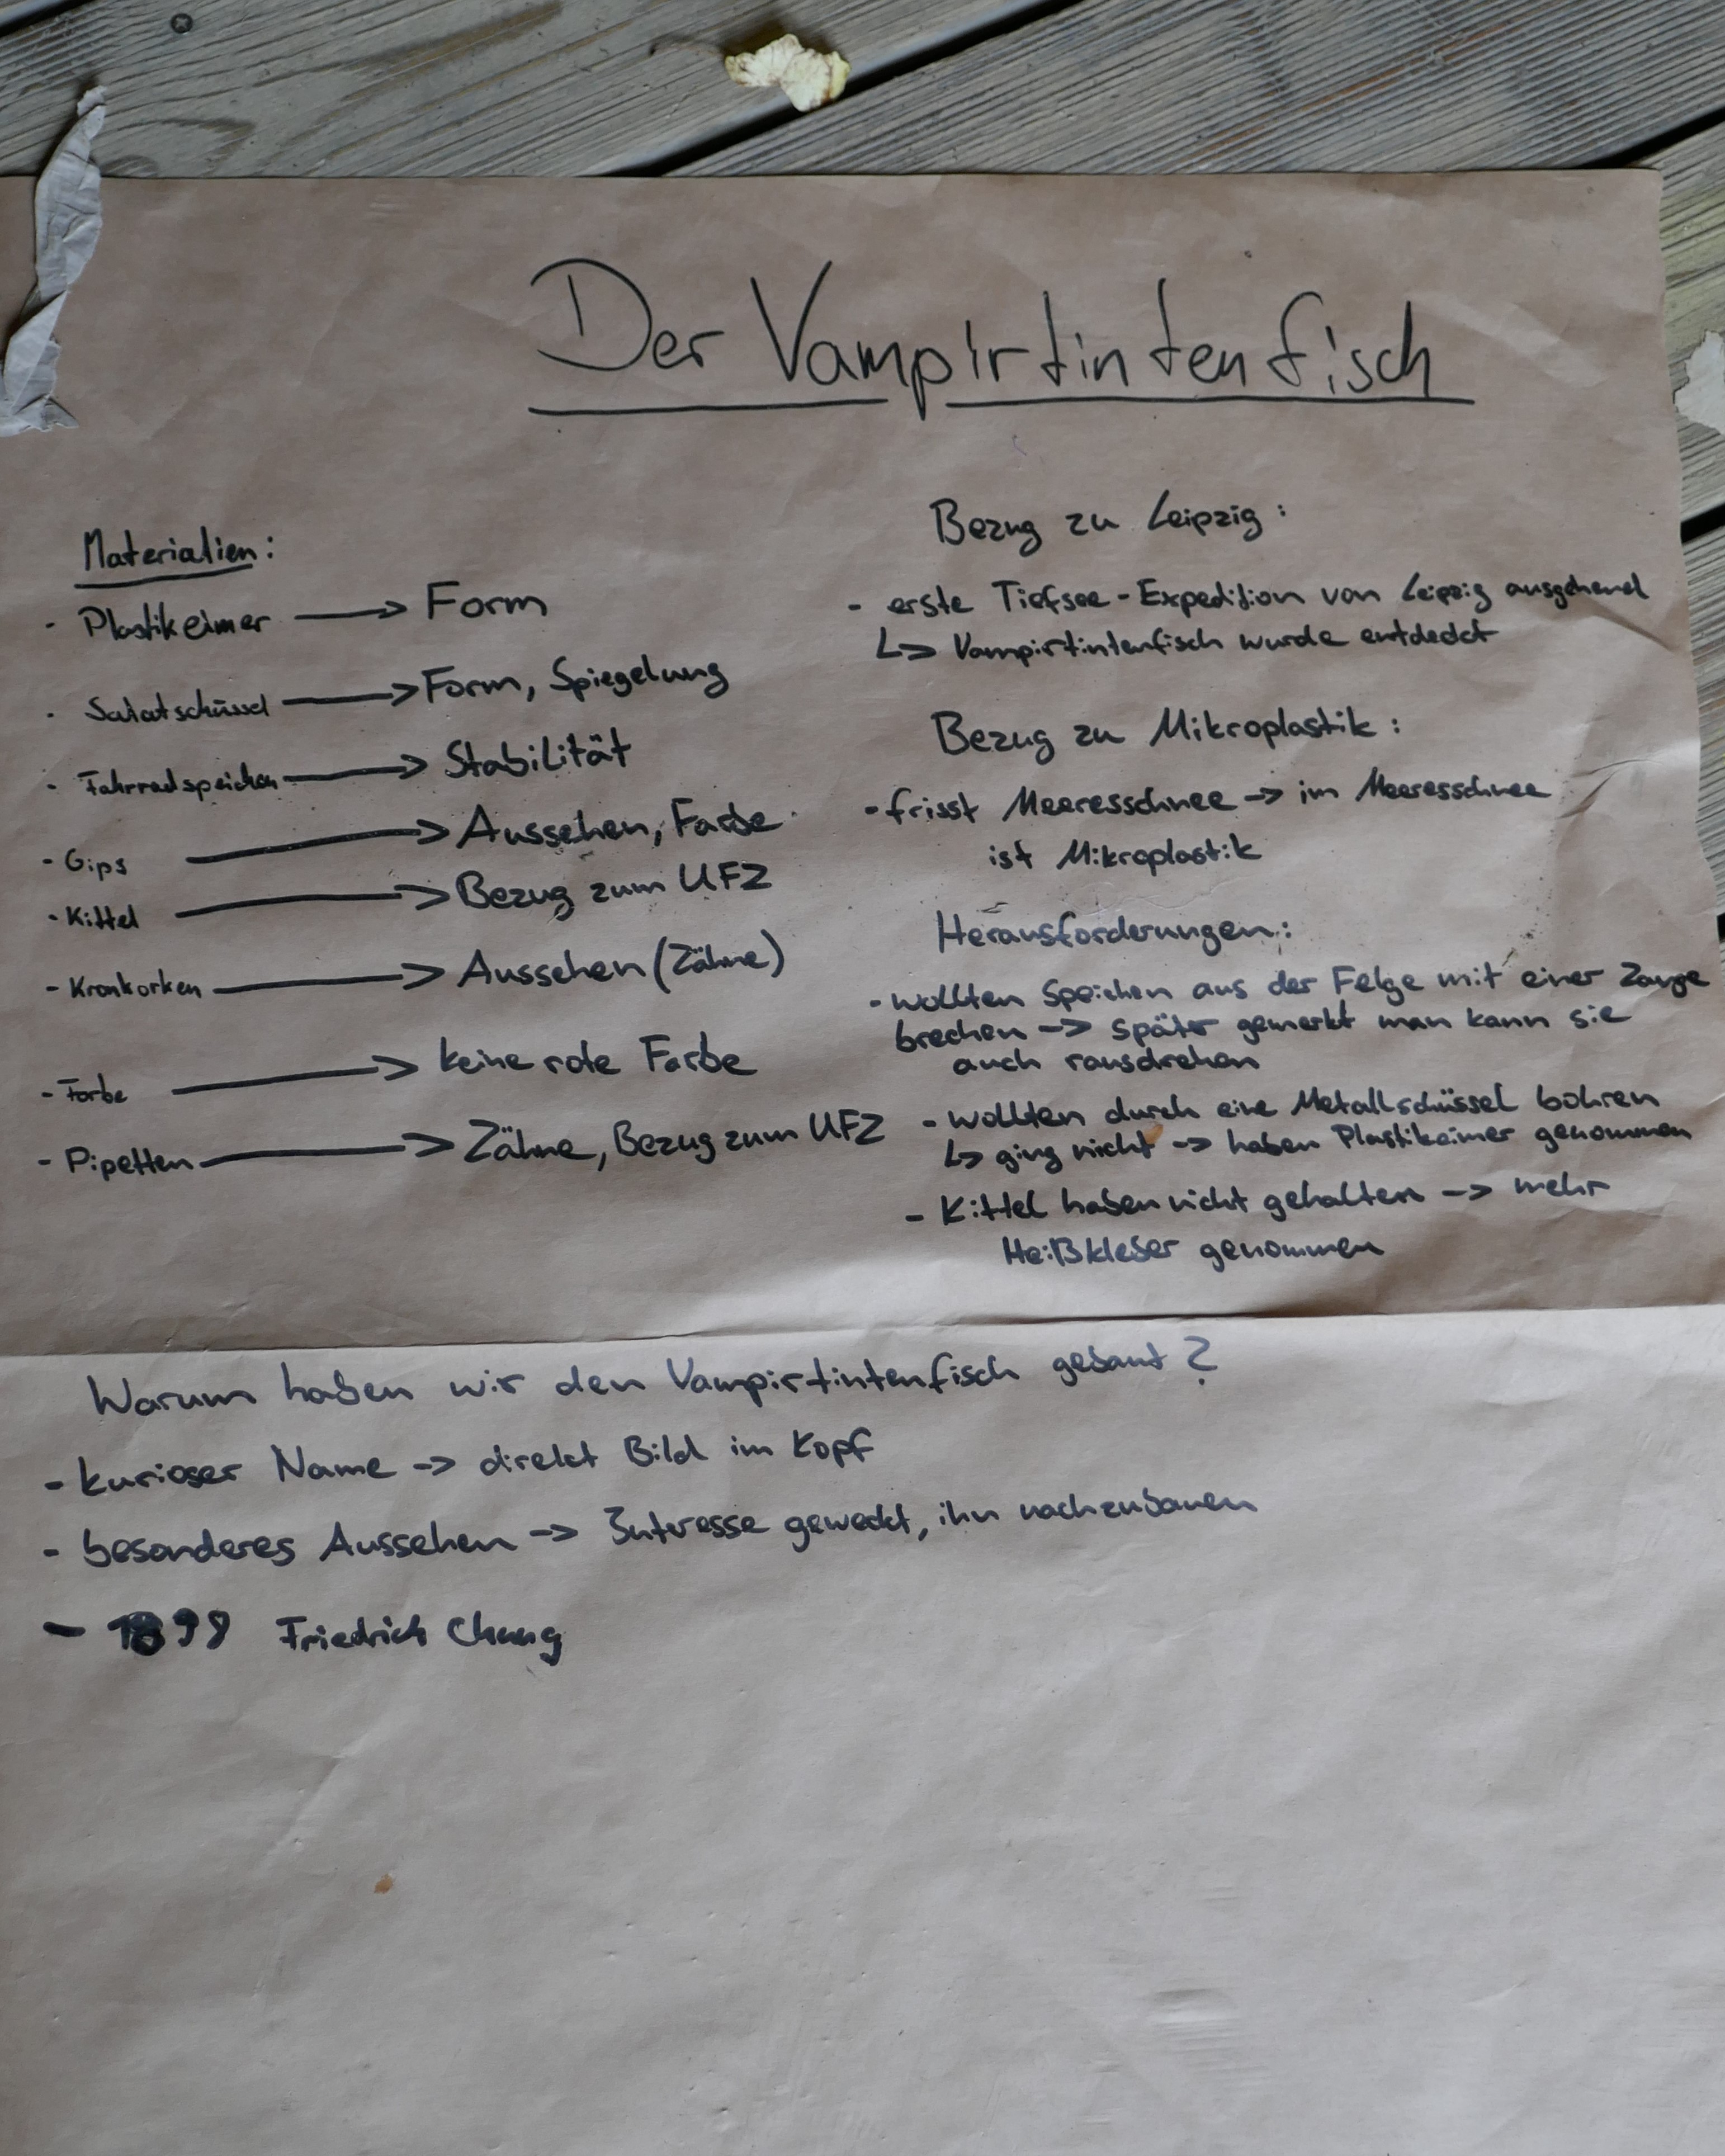 Der Vampirtintenfisch
Materialien:
- Plastikeimer → Form
- Salatschüssel → Form, Spiegelung
- Fahrradspeichen → Stabilität
- Gips → Aussehen, Farbe
- Kittel → Bezug zum UFZ
- Kronkorken → Aussehen (Zähne)
- Farbe → keine rote Farbe
- Pipetten → Zähne, Bezug zum UFZ
Bezug zu Leipzig:
- erste Tiefsee-Expedition von Leipzig ausgehend
↳ Vampirtintenfisch wurde entdeckt
Bezug zu Mikroplastik:
- frisst Meeresschnee → im Meeresschnee
ist Mikroplastik
Herausforderungen:
- wollten Speichen aus der Felge mit einer Zange
brechen → später gemerkt man kann sie
auch rausdrehen
- wollten durch eine Metallschüssel bohren
↳ ging nicht → haben Plastikeimer genommen
- Kittel haben nicht gehalten → mehr
Heißkleber genommen
Warum haben wir den Vampirtintenfisch gebaut?
- kurioser Name → direkt Bild im Kopf
- besonderes Aussehen → Interesse geweckt, ihn nachzubauen
- 1898 Friedrich Chung